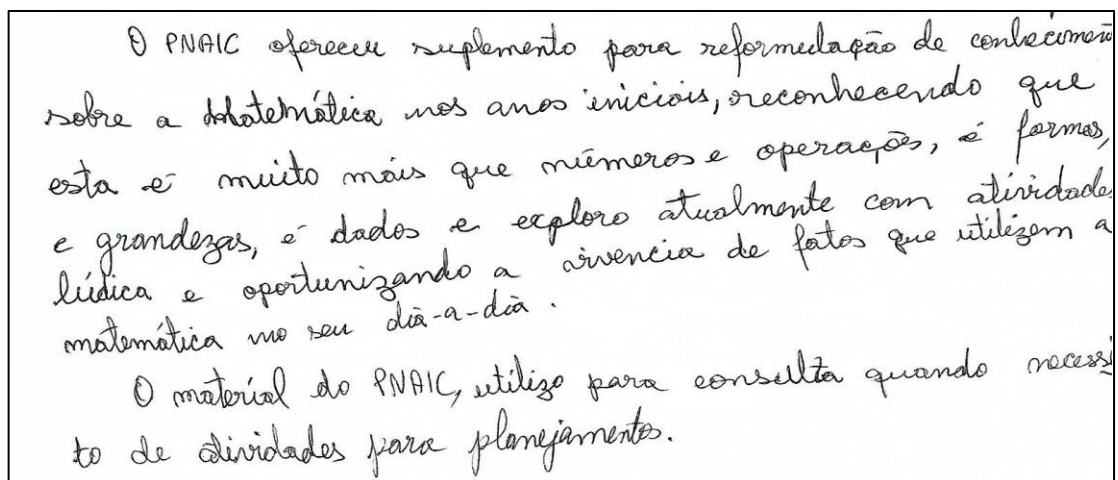 O PNAIC ofereceu suplemento para reformulação de conhecimen
sobre a Matemática nos anos iniciais, reconhecendo que
esta é muito mais que números e operações, é formas,
e grandezas, é dados e exploro atualmente com atividade
lúdica e oportunizando a vivencia de fatos que utilizem a
matemática no seu dia-a-dia.
O material do PNAIC, utilizo para consulta quando necessi
to de atividades para planejamentos.